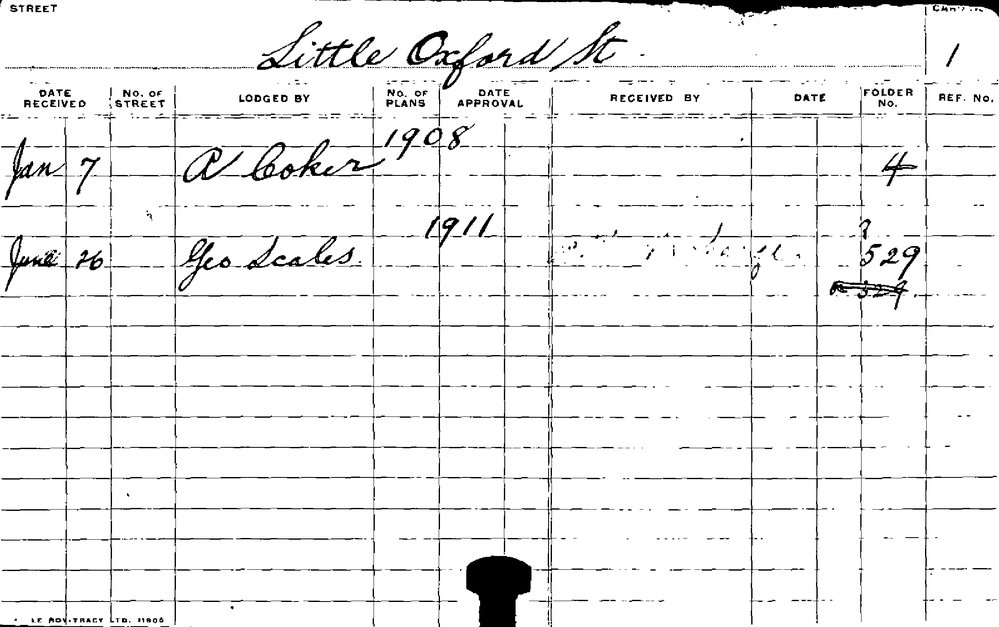 STREET
Little Oxford St
1
DATE RECEIVED No. OF STREET LODGED BY No. OF PLANS DATE APPROVAL RECEIVED BY DATE FOLDER No. REF. No.
1908
Jan 7 A Coker 4
1911
June 26 Geo Scales 529
LE ROY-TRACY LTD. 11905